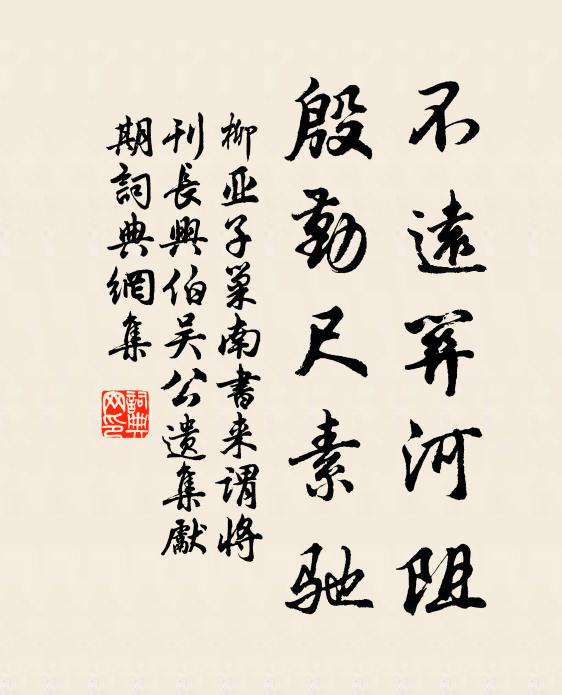 不遠關河阻
殷勤尺素馳
柳亚子巢南書来謂將
刊長興伯吴公遺集獻
期詞典網集
詞典
网印